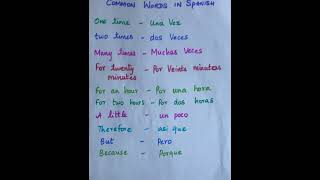 COMMON WORDS IN SPANISH
One time - Una Vez
two times - dos Veces
Many times - Muchas Veces
For twenty minutes - Por Veinte minutos
For an hour - Por una hora
For two hours - Por dos horas
A little - un poco
Therefore - asi que
But - Pero
Because - Porque